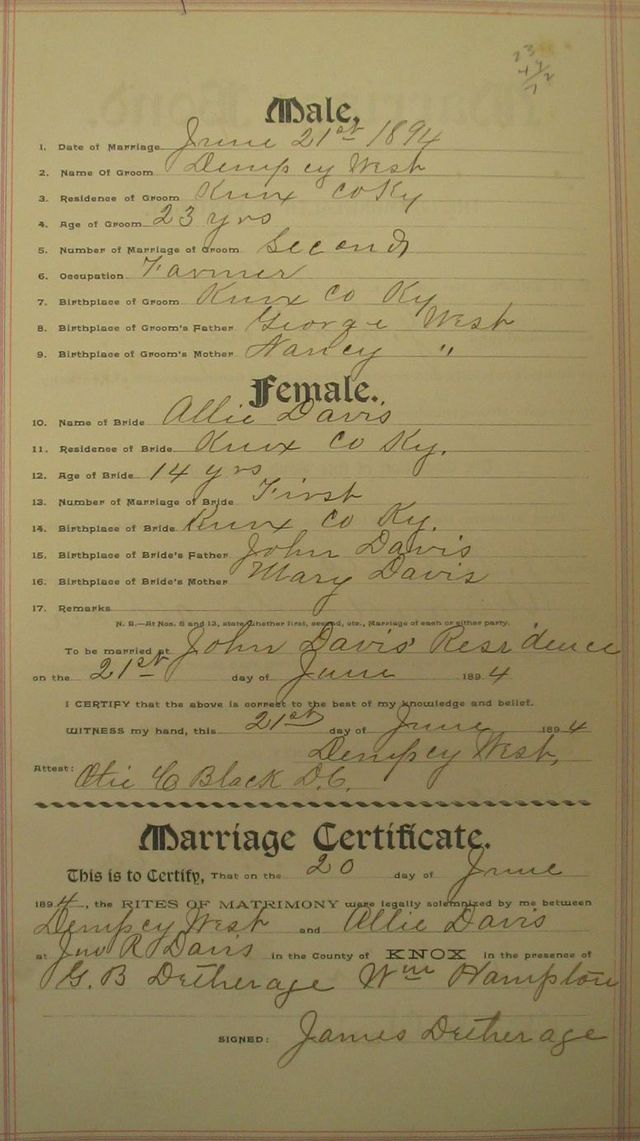 23
4/2
7/2
Male,
1. Date of Marriage June 21st 1894
2. Name Of Groom Dempcy West
3. Residence of Groom Knox Co Ky
4. Age of Groom 23 yrs
5. Number of Marriage of Groom Second
6. Occupation Farmer
7. Birthplace of Groom Knox Co Ky
8. Birthplace of Groom's Father George West
9. Birthplace of Groom's Mother Nancy "
Female.
10. Name of Bride Allie Davis
11. Residence of Bride Knox Co Ky.
12. Age of Bride 14 yrs
13. Number of Marriage of Bride First
14. Birthplace of Bride Knox Co Ky.
15. Birthplace of Bride's Father John Davis
16. Birthplace of Bride's Mother Mary Davis
17. Remarks
N. B.—At Nos. 5 and 13, state whether first, second, etc., Marriage of each or either party.
To be married at John Davis' Residence
on the 21st day of June 1894
I CERTIFY that the above is correct to the best of my knowledge and belief.
WITNESS my hand, this 21st day of June 1894
Dempcy West,
Attest: Otie C Black D.C.
Marriage Certificate.
This is to Certify, That on the 20 day of June
1894, the RITES OF MATRIMONY were legally solemnized by me between
Dempcy West and Allie Davis
at Jno R Davis in the County of KNOX in the presence of
G. B Detherage Wm Hampton
SIGNED: James Detherage